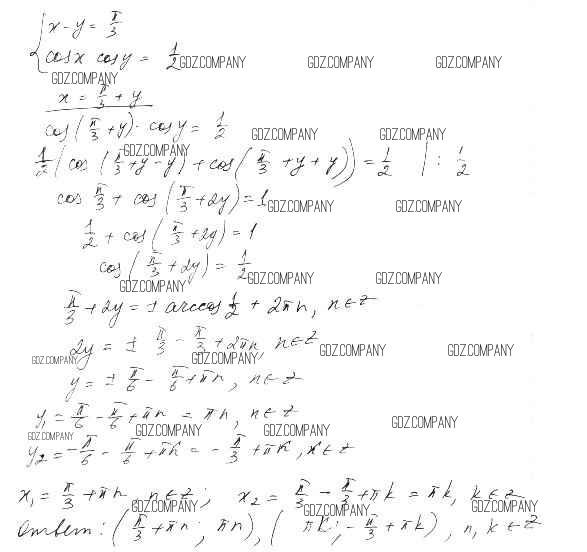 x - y = π/3
cosx cosy = 1/2 GDZ.COMPANY GDZ.COMPANY GDZ.COMPANY
GDZ.COMPANY
x = π/3 + y
cos(π/3 + y) · cosy = 1/2 GDZ.COMPANY GDZ.COMPANY
GDZ.COMPANY
1/2(cos(π/3 + y - y) + cos(π/3 + y + y)) = 1/2 | : 1/2
cos π/3 + cos(π/3 + 2y) = 1 GDZ.COMPANY GDZ.COMPANY
1/2 + cos(π/3 + 2y) = 1
cos(π/3 + 2y) = 1/2 GDZ.COMPANY GDZ.COMPANY
GDZ.COMPANY
π/3 + 2y = ± arccos 1/2 + 2πn, n∈Z
2y = ± π/3 - π/3 + 2πn, n∈Z GDZ.COMPANY GDZ.COMPANY
GDZ.COMPANY GDZ.COMPANY
y = ± π/6 - π/6 + πn, n∈Z
y₁ = π/6 - π/6 + πn = πn, n∈Z GDZ.COMPANY
GDZ.COMPANY GDZ.COMPANY GDZ.COMPANY
y₂ = -π/6 - π/6 + πk = -π/3 + πk, k∈Z
x₁ = π/3 + πn, n∈Z; x₂ = π/3 - π/3 + πk = πk, k∈Z
GDZ.COMPANY GDZ.COMPANY GDZ.COMPANY
Ответ: (π/3 + πn; πn), (πk; -π/3 + πk), n, k∈Z